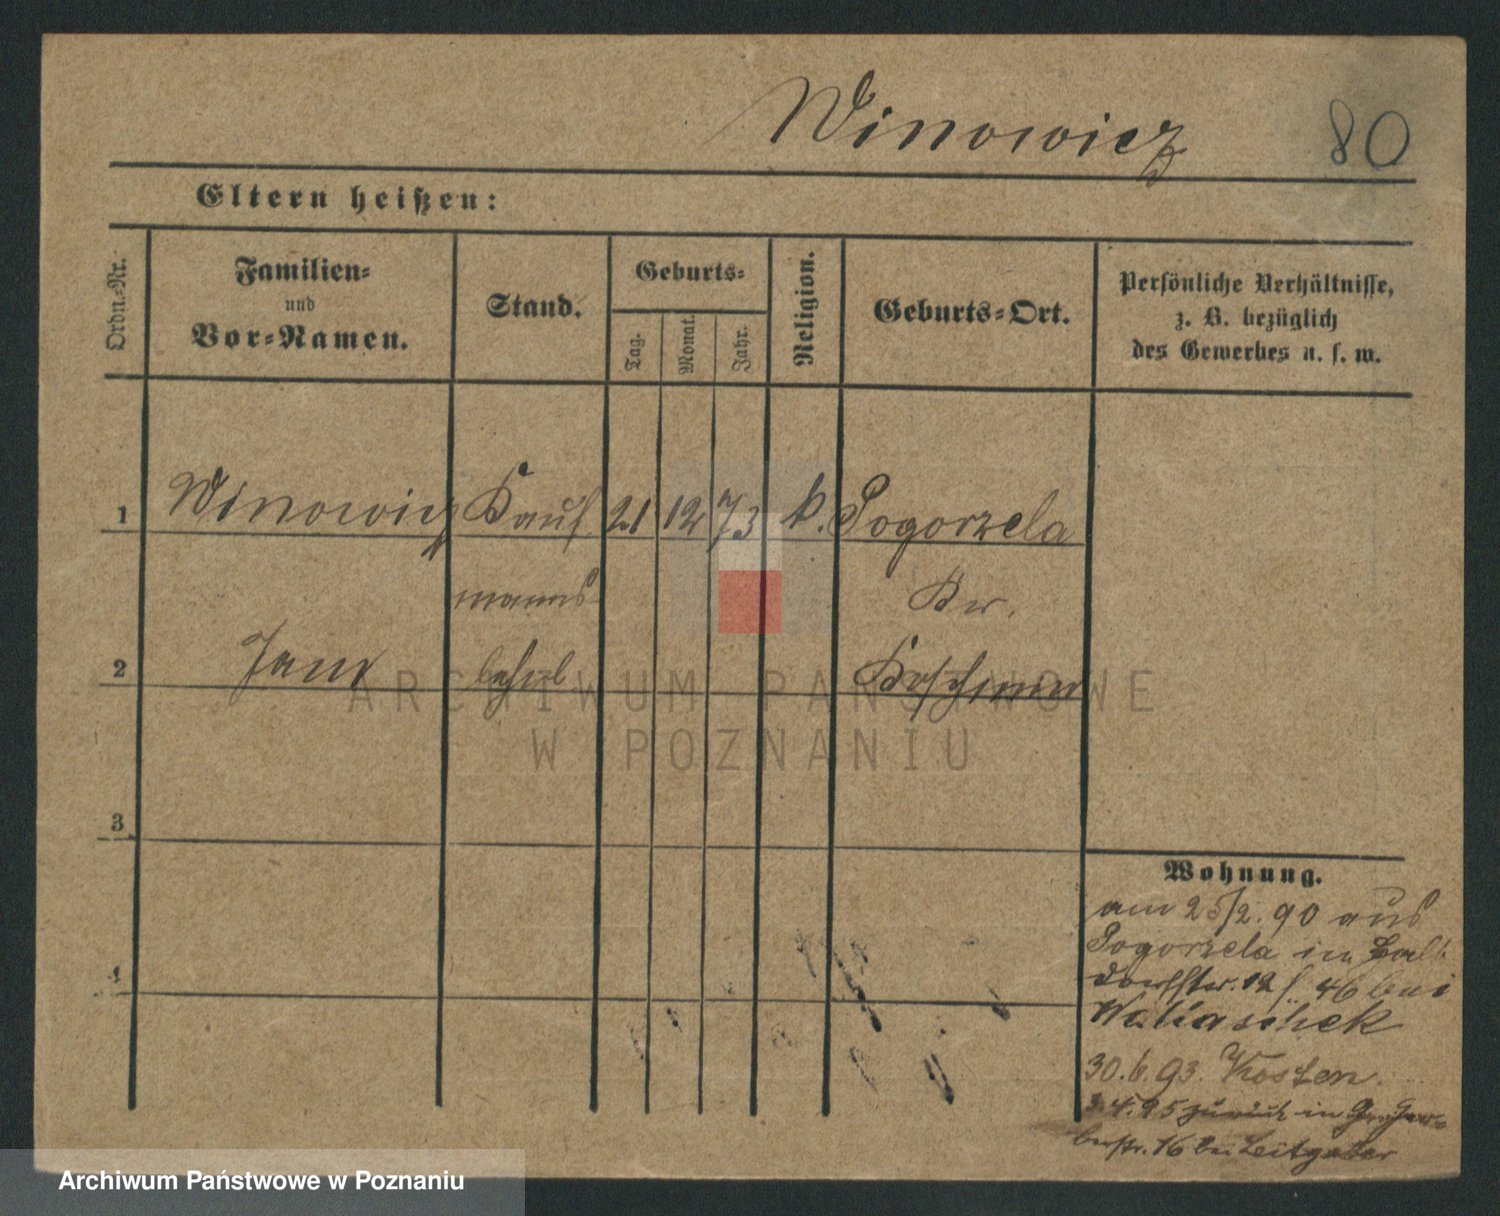 Winowicz 80
Eltern heißen:
Ordn.-Nr.
Familien-
und
Vor-Namen.
Stand.
Geburts-
Tag.
Monat.
Jahr.
Religion.
Geburts-Ort.
Persönliche Verhältnisse,
z. B. bezüglich
des Gewerbes u. s. w.
1 Winowicz Kauf 21 12 73 k. Pogorzela
manns- Kr.
2 Jan lehrl Koschmin
ARCHIWUM PAŃSTWOWE
W POZNANIU
3
4
Wohnung.
am 25/2. 90 aus
Pogorzela in
12 46 bei
30.6.93. Kosten.
3.4.95 zurück in Gr. Ger-
berstr. 16 bei Leitgeber
Archiwum Państwowe w Poznaniu